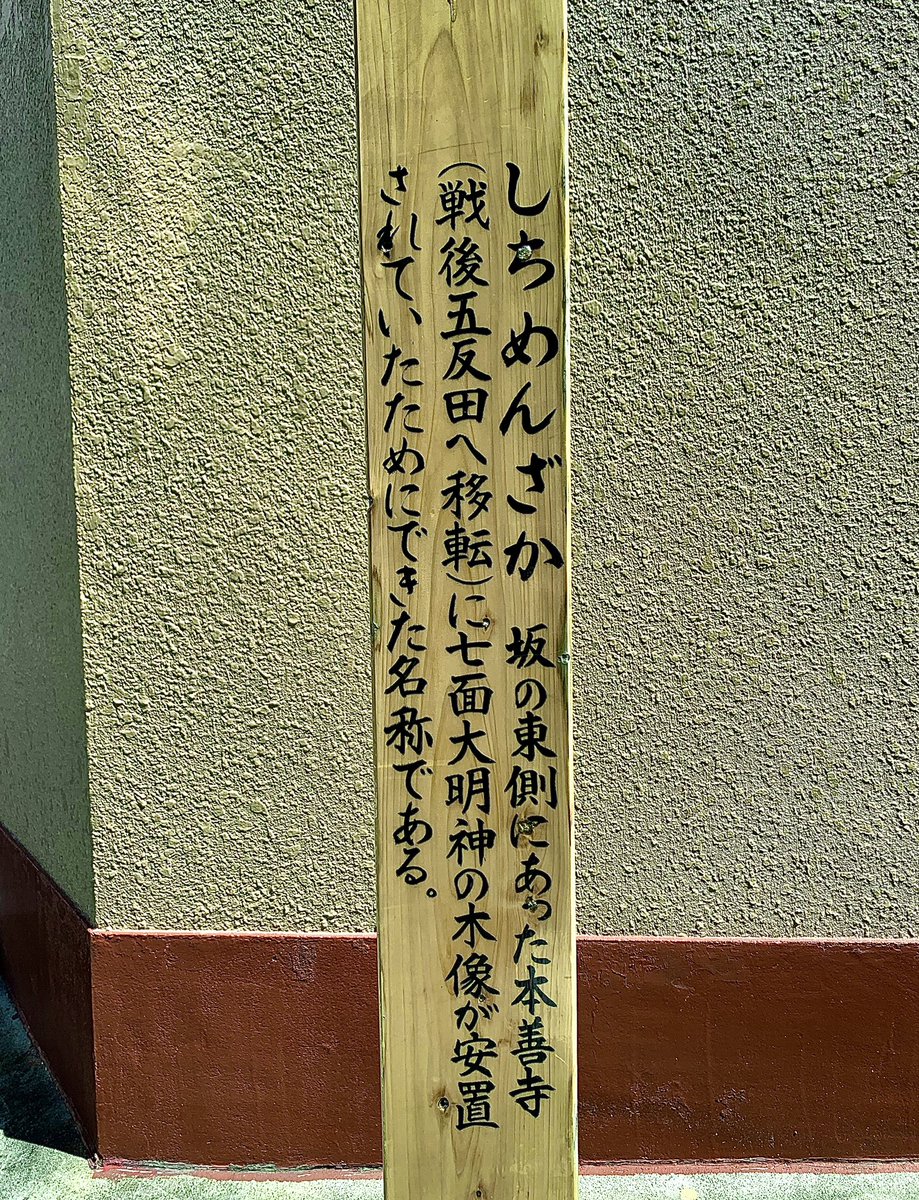 しちめんざか 坂の東側にあった本善寺
(戦後五反田へ移転)に七面大明神の木像が安置
されていたためにできた名称である。